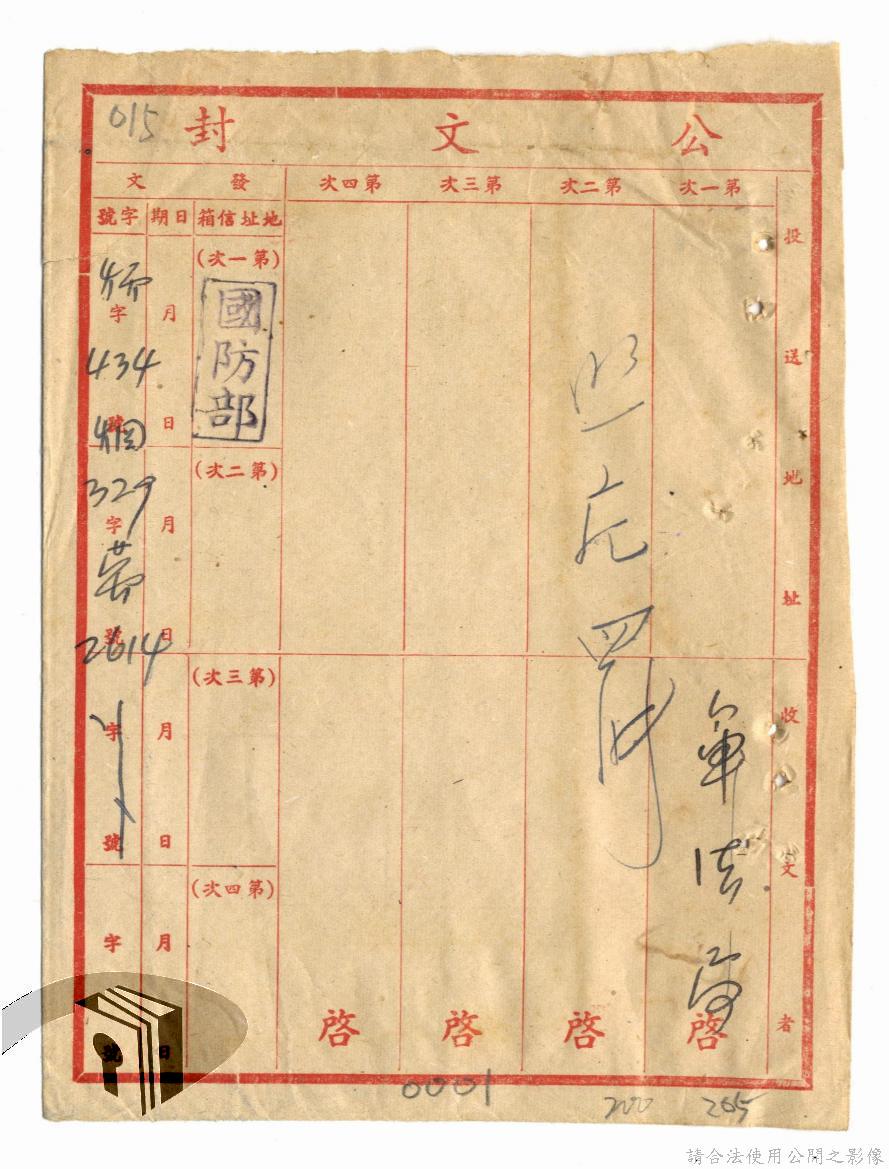 015
公文封
第一次
第二次
第三次
第四次
發文
投送地址
收文者
地址信箱
日期
字號
(第一次)
國防部
月
日
字
434
號
(第二次)
月
日
329
字
號
2614
(第三次)
月
日
字
號
(第四次)
月
日
字
號
軍法局
啓
啓
啓
啓
0001
200
265
請合法使用公開之影像